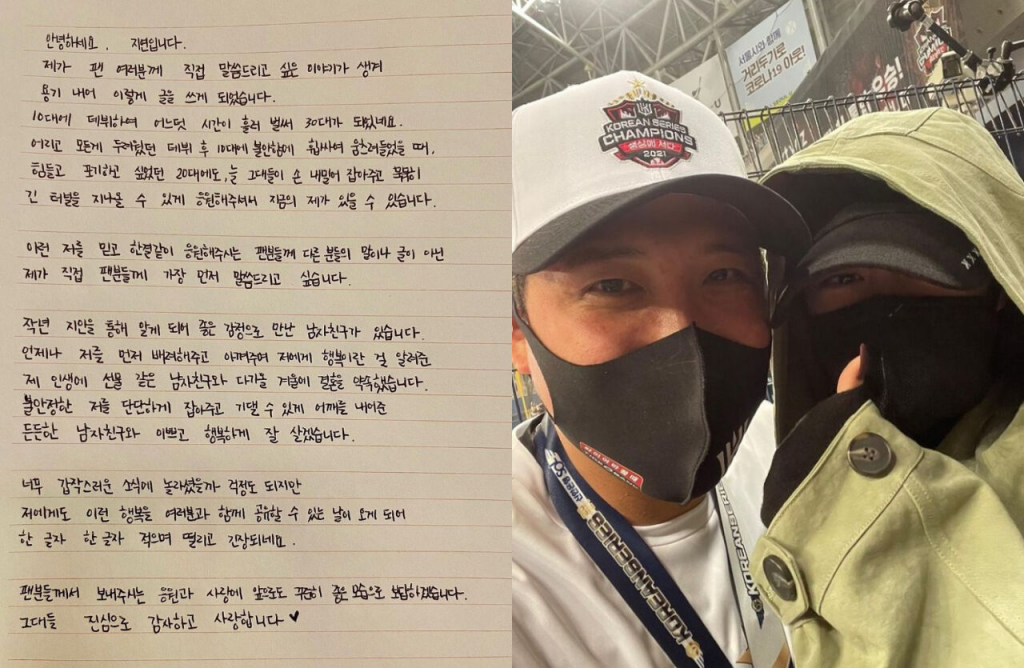 안녕하세요, 지연입니다.
제가 팬 여러분께 직접 말씀드리고 싶은 이야기가 생겨
용기 내어 이렇게 글을 쓰게 되었습니다.
10대에 데뷔하여 어느덧 시간이 흘러 벌써 30대가 되었네요.
어리고 모든게 두려웠던 데뷔 후 10대에 불안함에 휩싸여 움츠러들었을 때,
힘들고 포기하고 싶었던 20대에도, 늘 그대들이 손 내밀어 잡아주고 묵묵히
긴 터널을 지나올 수 있게 응원해주셔서 지금의 제가 있을 수 있습니다.
이런 저를 믿고 한결같이 응원해주시는 팬분들께 다른 분들의 말이나 글이 아닌
제가 직접 팬분들께 가장 먼저 말씀드리고 싶습니다.
작년 지인을 통해 알게 되어 좋은 감정으로 만난 남자친구가 있습니다.
언제나 저를 먼저 배려해주고 아껴주며 저에게 행복이란 걸 알려준
제 인생에 선물 같은 남자친구와 다가올 겨울에 결혼을 약속했습니다.
불안정한 저를 단단하게 잡아주고 기댈 수 있게 어깨를 내어준
든든한 남자친구와 이쁘고 행복하게 잘 살겠습니다.
너무 갑작스러운 소식에 놀라셨을까 걱정도 되지만
저에게도 이런 행복을 여러분과 함께 공유할 수 있는 날이 오게 되어
한 글자 한 글자 적으며 떨리고 긴장되네요.
팬분들께서 보내주시는 응원과 사랑에 앞으로도 꾸준히 좋은 모습으로 보답하겠습니다.
그대들 진심으로 감사하고 사랑합니다 ♥
거리두기로
코로나19 아웃!
우승!
KOREAN SERIES
CHAMPIONS
2021
KOREANSERIES
KOREANSERIES